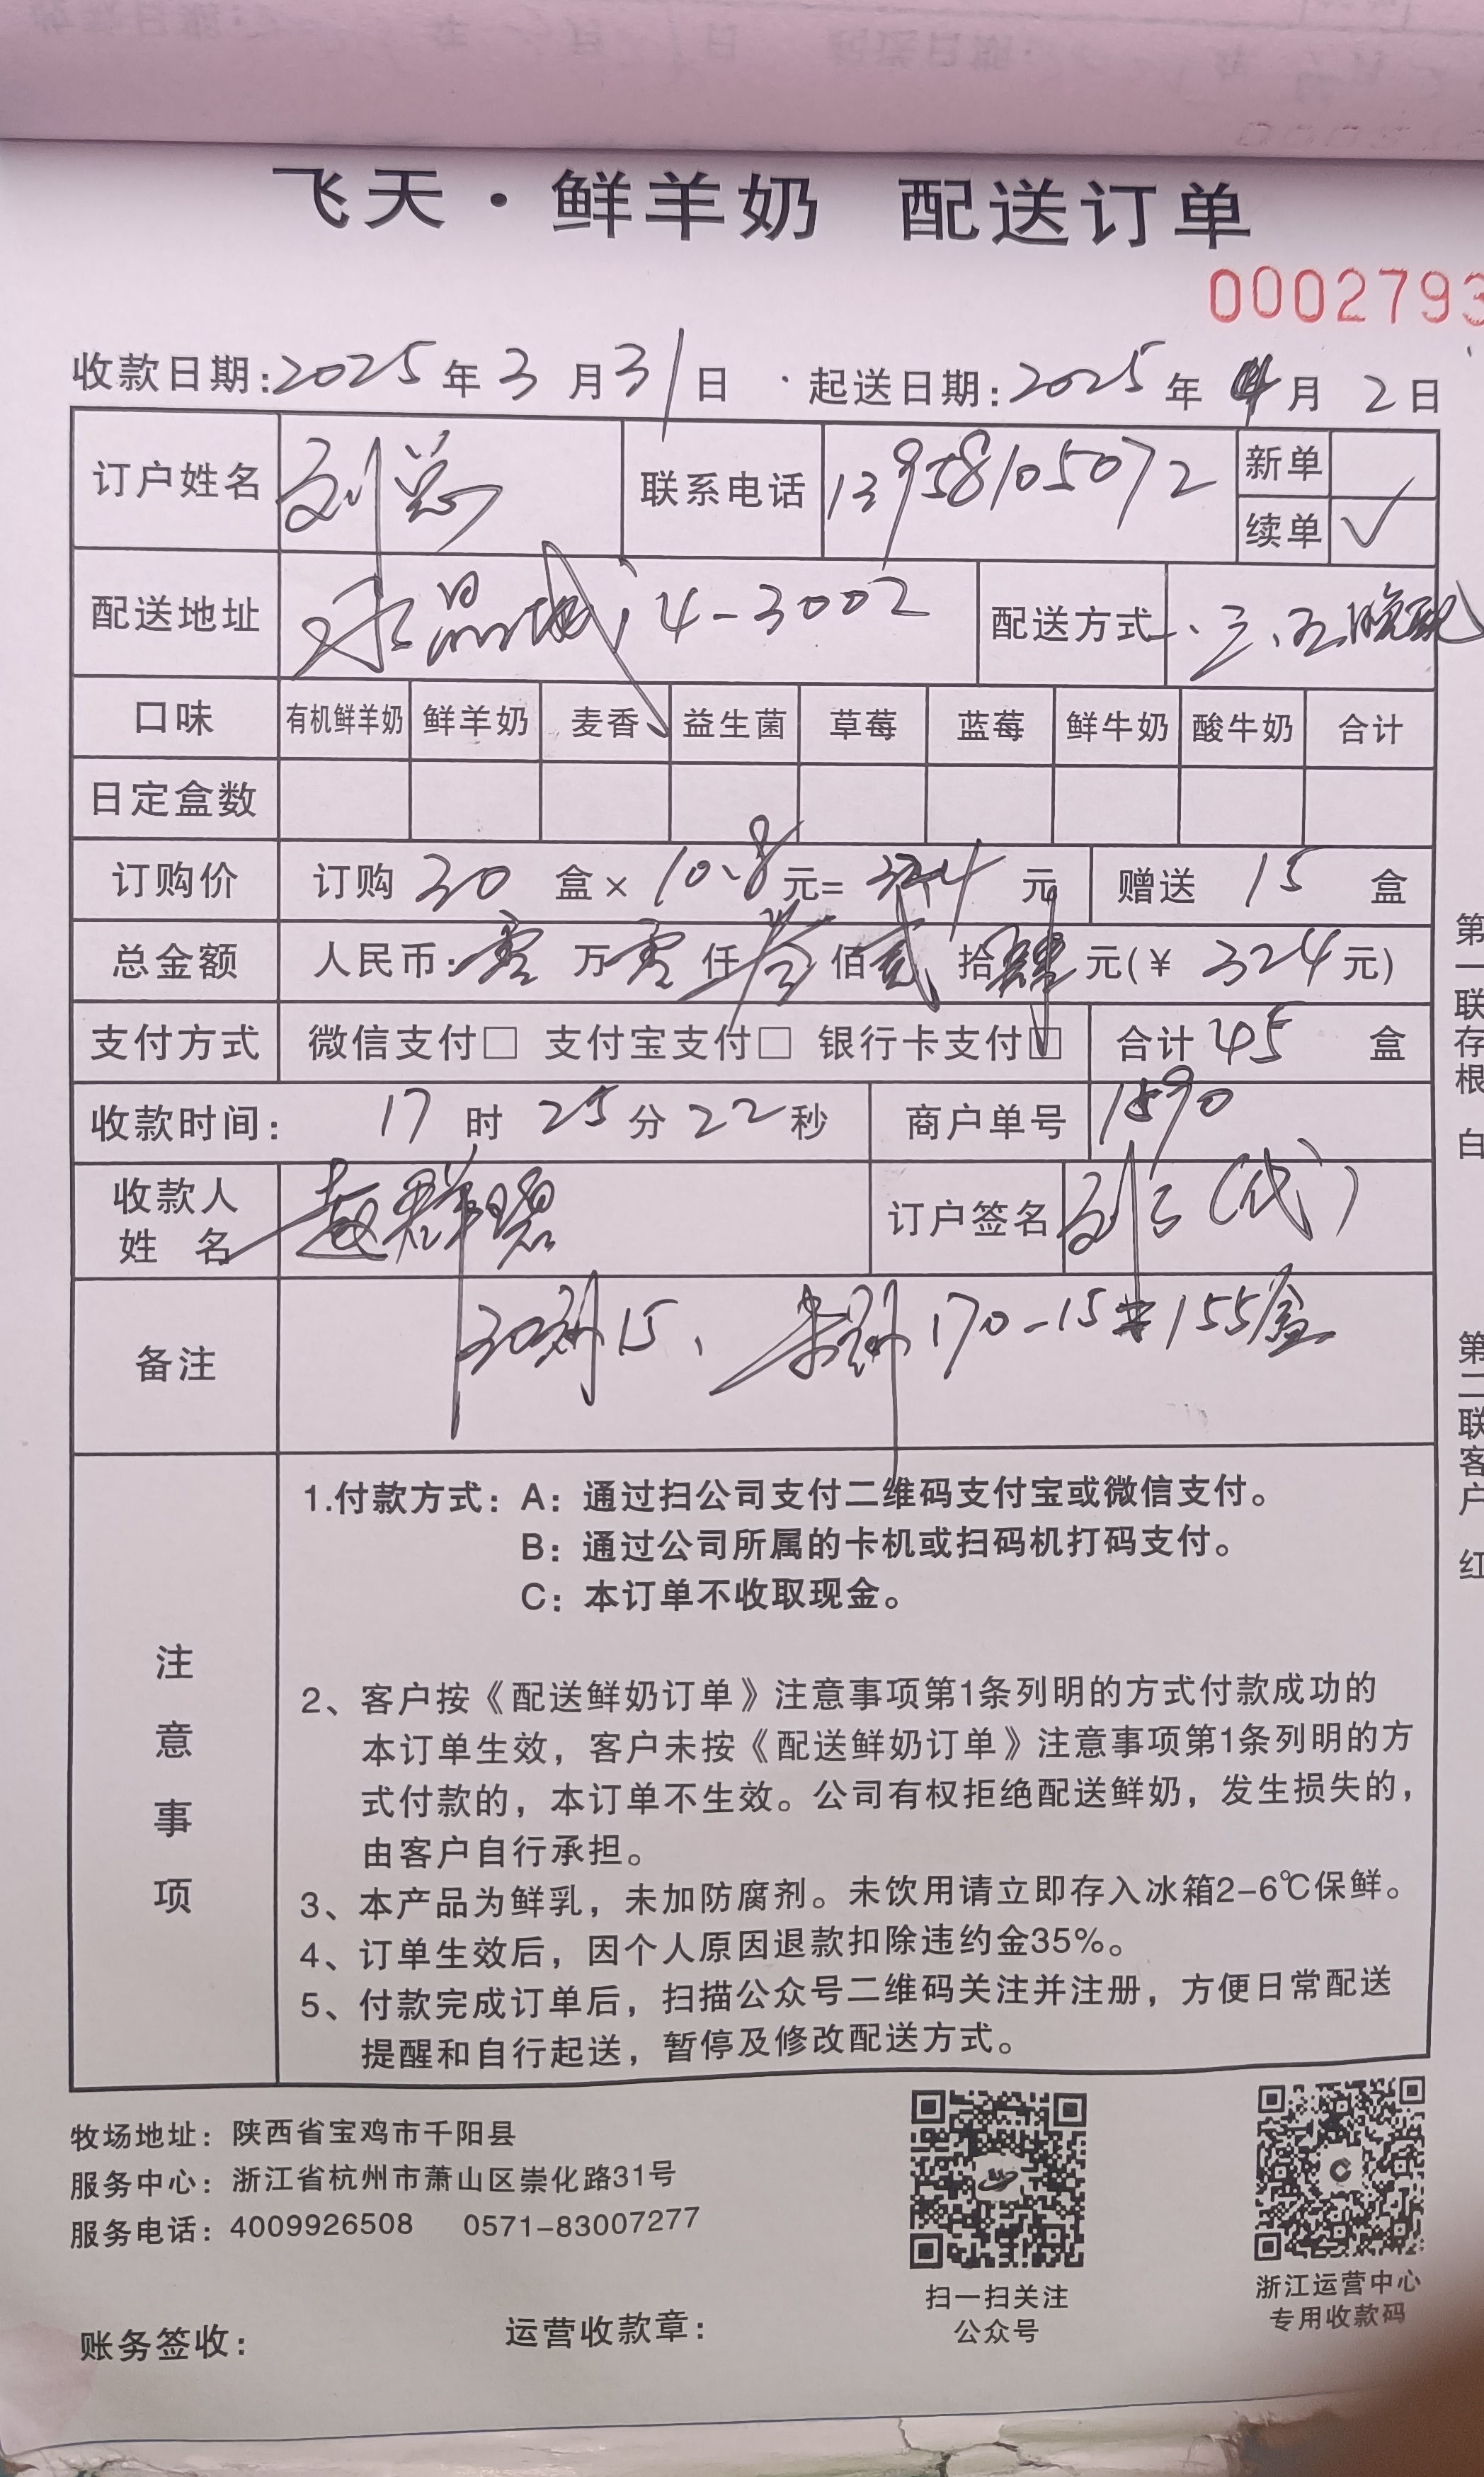 飞天·鲜羊奶 配送订单
0002793
收款日期:2025年3月31日 起送日期:2025年4月2日
订户姓名 刘总 联系电话 13958105072 新单
续单 ✓
配送地址 水晶城14-3002 配送方式 一、三、五晚配
口味 有机鲜羊奶 鲜羊奶 麦香 益生菌 草莓 蓝莓 鲜牛奶 酸牛奶 合计
日定盒数
订购价 订购 30 盒× 10.8元= 324 元 赠送 15 盒
总金额 人民币:零万零仟叁佰贰拾肆元(¥ 324元)
支付方式 微信支付□ 支付宝支付□ 银行卡支付□ 合计 45 盒
收款时间: 17时25分22秒 商户单号 1590
收款人 赵群碧 订户签名 刘总(代)
姓 名
备注 30列15、 170-15 155盒
1.付款方式:A:通过扫公司支付二维码支付宝或微信支付。
B:通过公司所属的卡机或扫码机打码支付。
C:本订单不收取现金。
注意事项
2、客户按《配送鲜奶订单》注意事项第1条列明的方式付款成功的
本订单生效,客户未按《配送鲜奶订单》注意事项第1条列明的方
式付款的,本订单不生效。公司有权拒绝配送鲜奶,发生损失的,
由客户自行承担。
3、本产品为鲜乳,未加防腐剂。未饮用请立即存入冰箱2-6℃保鲜。
4、订单生效后,因个人原因退款扣除违约金35%。
5、付款完成订单后,扫描公众号二维码关注并注册,方便日常配送
提醒和自行起送,暂停及修改配送方式。
第一联存根 白
第二联客户 红
牧场地址:陕西省宝鸡市千阳县
服务中心:浙江省杭州市萧山区崇化路31号
服务电话:4009926508 0571-83007277
扫一扫关注
公众号
浙江运营中心
专用收款码
账务签收: 运营收款章: